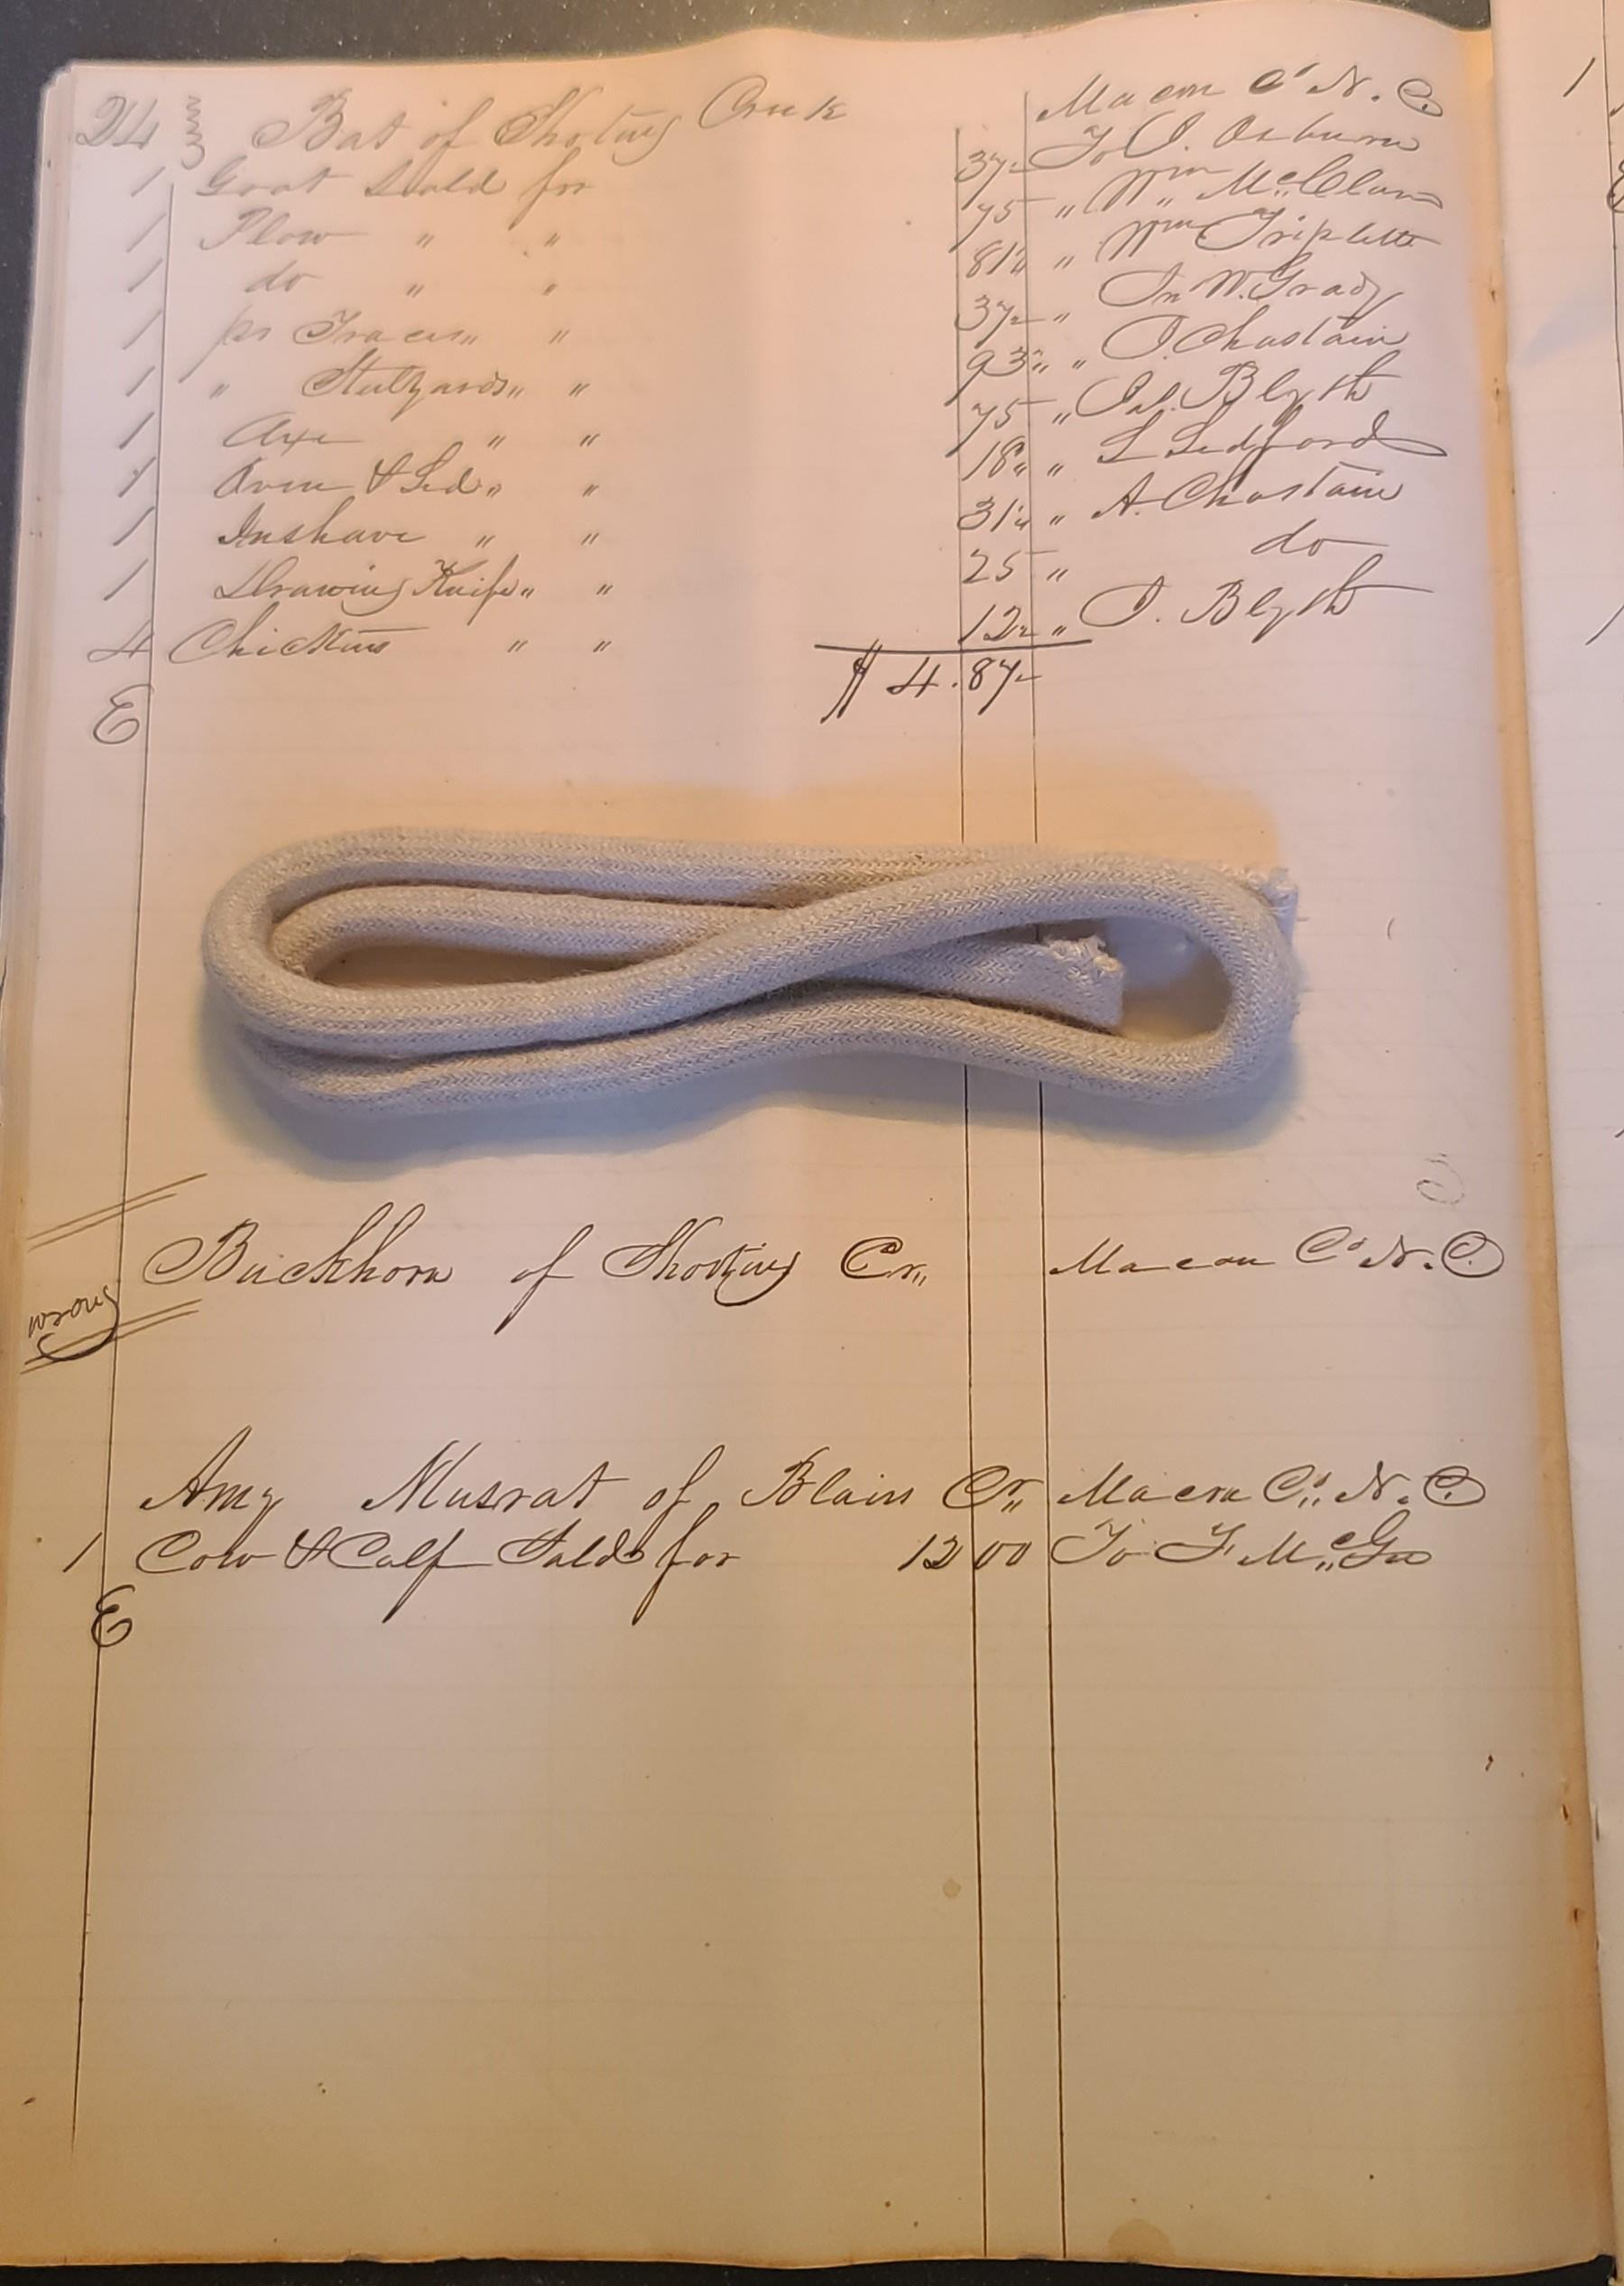 24 Bat of Shoting Creek Macon Co N. C.
1 Goat Sold for 37½ To J. Osburn
1 Plow " " 75 " Wm McClure
1 do " " 81¼ " Wm Triplette
1 pr Traces " " 37½ " Jn W. Grady
1 " Stulyards " " 93¾ " J. Chastain
1 Axe " " 75 " Jas. Blyth
1 Oven & Led " " 18¾ " L Ledford
1 Inshave " " 31¼ " A. Chastain
1 Drawing Knife " " 25 " do
4 Chickens " " 12½ " J. Blyth
E $ 4.87½
wrong Buckhorn of Shooting Cr,, Macon Co N. C.
Amy Musrat of Blairs Cr,, Macon Co,, N. C.
1 Cow & Calf Sold for 12 00 To F Mc,,Gee
E